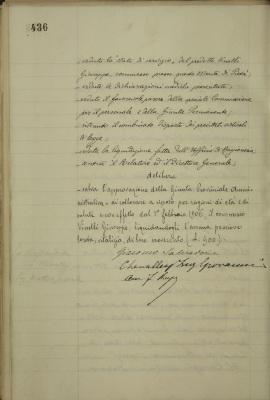 436
- veduto lo stato di servizio, del predetto Vivalli
Giuseppe, commesso presso questo Monte di Pietà;
- vedute le dichiarazioni mediche presentate;
- veduto il favorevole parere della speciale Commissione
per il personale e della Giunta Permanente;
- ritenuto il combinato disposto dei predetti articoli
di legge;
- veduta la liquidazione fatta dall'Ufficio di Ragioneria
- sentito il Relatore ed il Direttore Generale;
delibera
- salva l'approvazione della Giunta Provinciale Ammi-
nistrativa, - di collocare a riposo per ragioni di età e di
salute con effetto dal 1° febbraio 1906, il commesso
Vivalli Giuseppe liquidandogli l'annua pensione
lorda, vitalizia, di lire novecento (L. 900).
Giacomo Salvadori
Giovanni